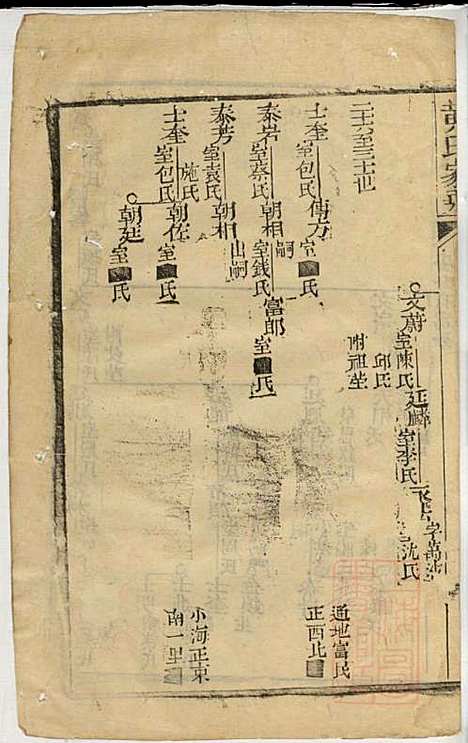 黄氏家
文蔚 室陳氏 邱氏 附祖坐
廷麟 室李氏
字萬
沈氏
通地富民
正西北
二十六至三十世
士奎 室包氏
傳方 室■氏
泰岩 室蔡氏
朝相 嗣 室錢氏
富郎 室■氏
泰芳 室袁氏 施氏
朝相 出嗣
小海正東
南一里
士奎 室包氏
朝佐 室■氏
朝廷 室■氏